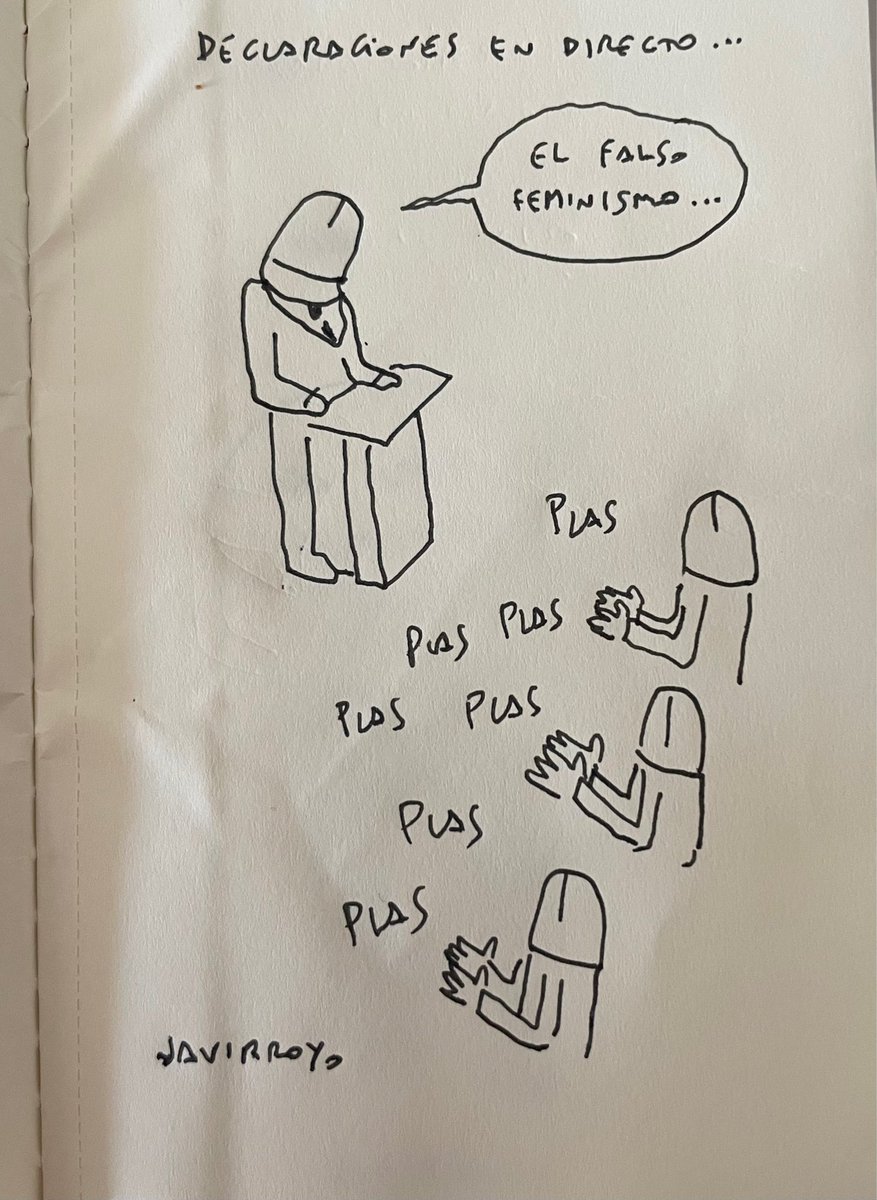 DECLARACIONES EN DIRECTO...
EL FALSO
FEMINISMO...
PLAS
PLAS PLAS
PLAS PLAS
PLAS
PLAS
JAVIRROYO